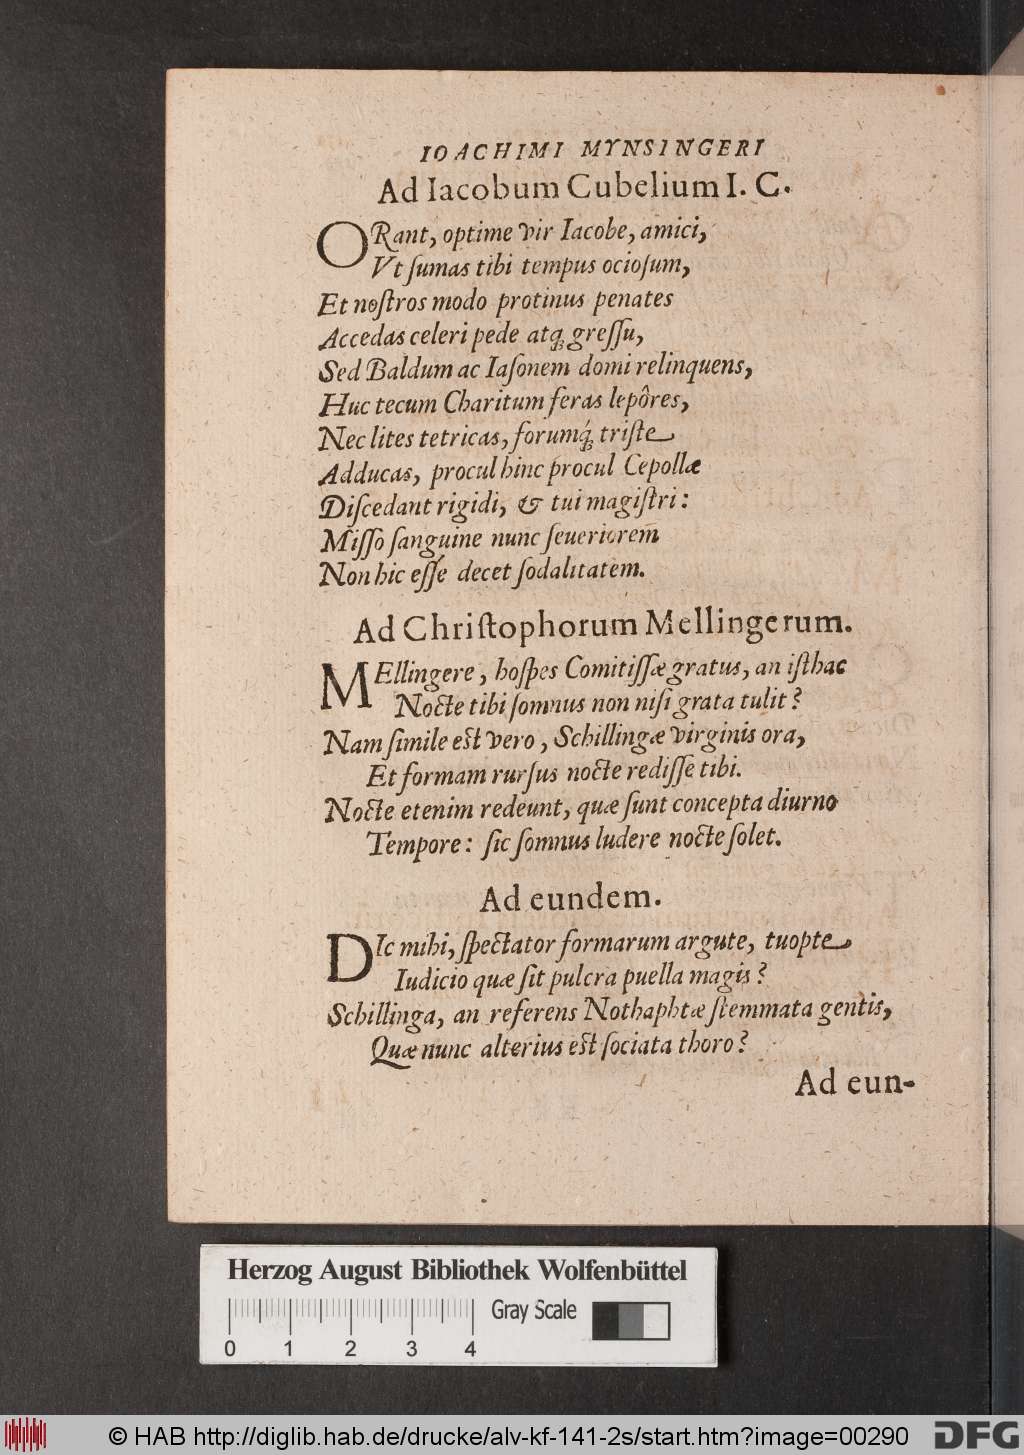 IOACHIMI MYNSINGERI
Ad Iacobum Cubelium I. C.
ORant, optime vir Iacobe, amici,
Vt ſumas tibi tempus ocioſum,
Et noſtros modo protinus penates
Accedas celeri pede atq; greſſu,
Sed Baldum ac Iaſonem domi relinquens,
Huc tecum Charitum feras lepôres,
Nec lites tetricas, forumq́; triſte
Adducas, procul hinc procul Cepollæ
Diſcedant rigidi, & tui magiſtri:
Miſſo ſanguine nunc ſeueriorem
Non hic eſſe decet ſodalitatem.
Ad Chriſtophorum Mellingerum.
MEllingere, hoſpes Comitiſſæ gratus, an iſthac
Nocte tibi ſomnus non niſi grata tulit?
Nam ſimile est vero, Schillingæ virginis ora,
Et formam rurſus nocte rediſſe tibi.
Nocte etenim redeunt, quæ ſunt concepta diurno
Tempore: ſic ſomnus ludere nocte ſolet.
Ad eundem.
DIc mihi, ſpectator formarum argute, tuopte
Iudicio quæ ſit pulcra puella magis?
Schillinga, an referens Nothaphtæ ſtemmata gentis,
Quæ nunc alterius est ſociata thoro?
Ad eun-
Herzog August Bibliothek Wolfenbüttel
Gray Scale
0 1 2 3 4
© HAB http://diglib.hab.de/drucke/alv-kf-141-2s/start.htm?image=00290
DFG